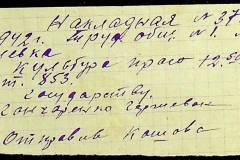 Накладная № 37
Труд общ. № 1.
Культура просо 12.50
т. 853.
государству.
гончаренко
Отправив Кашова